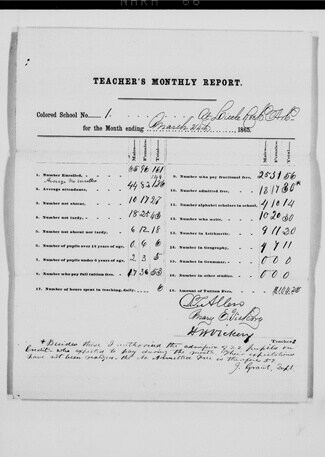 TEACHER'S MONTHLY REPORT.
Colored School No. 1. at Little Rock, Ark.
for the Month ending March 24th, 1865.
Males. Females. Total.
1. Number Enrolled, 65 96 161
2. Average attendance, 44 82 126
3. Number not absent, 10 17 27
4. Number not tardy, 18
5. Number not absent nor tardy, 6 12 18
6. Number of pupils over 16 years of age, 0 6 6
7. Number of pupils under 6 years of age, 2 3 5
8. Number who pay full tuition fee, 17 36 53
17. Number of hours spent in teaching daily, 6
Males. Females. Total.
9. Number who pay fractional fees, 25 31 56
10. Number admitted free,
11. Number alphabet scholars in school, 4 10 14
12. Number who write, 10 20 30
13. Number in Arithmetic, 9 11 20
14. Number in Geography, 4 7 11
15. Number in Grammar, 0 0 0
16. Number in other studies, 0 0 0
18. Amount of Tuition Fees,
Allen
Mary E.
Vickery
Teachers
* Besides these I authorized the admission of 22 pupils on
credit who expected to pay during the month. Their expectations
have not been realized. The No. Admitted Free is therefore 52
J. Grant, Supt.